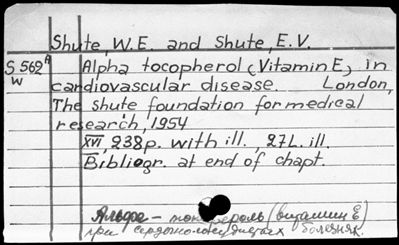 Shute, W.E. and Shute, E.V.
S 569 A Alpha tocopherol (Vitamin E) in
W cardiovascular disease. London,
The shute foundation for medical
research, 1954
XVI, 238p. with ill., 27L. ill.
Bibliogr. at end of chapt.
Альфа - токоферол (витамин Е)
при болезнях.